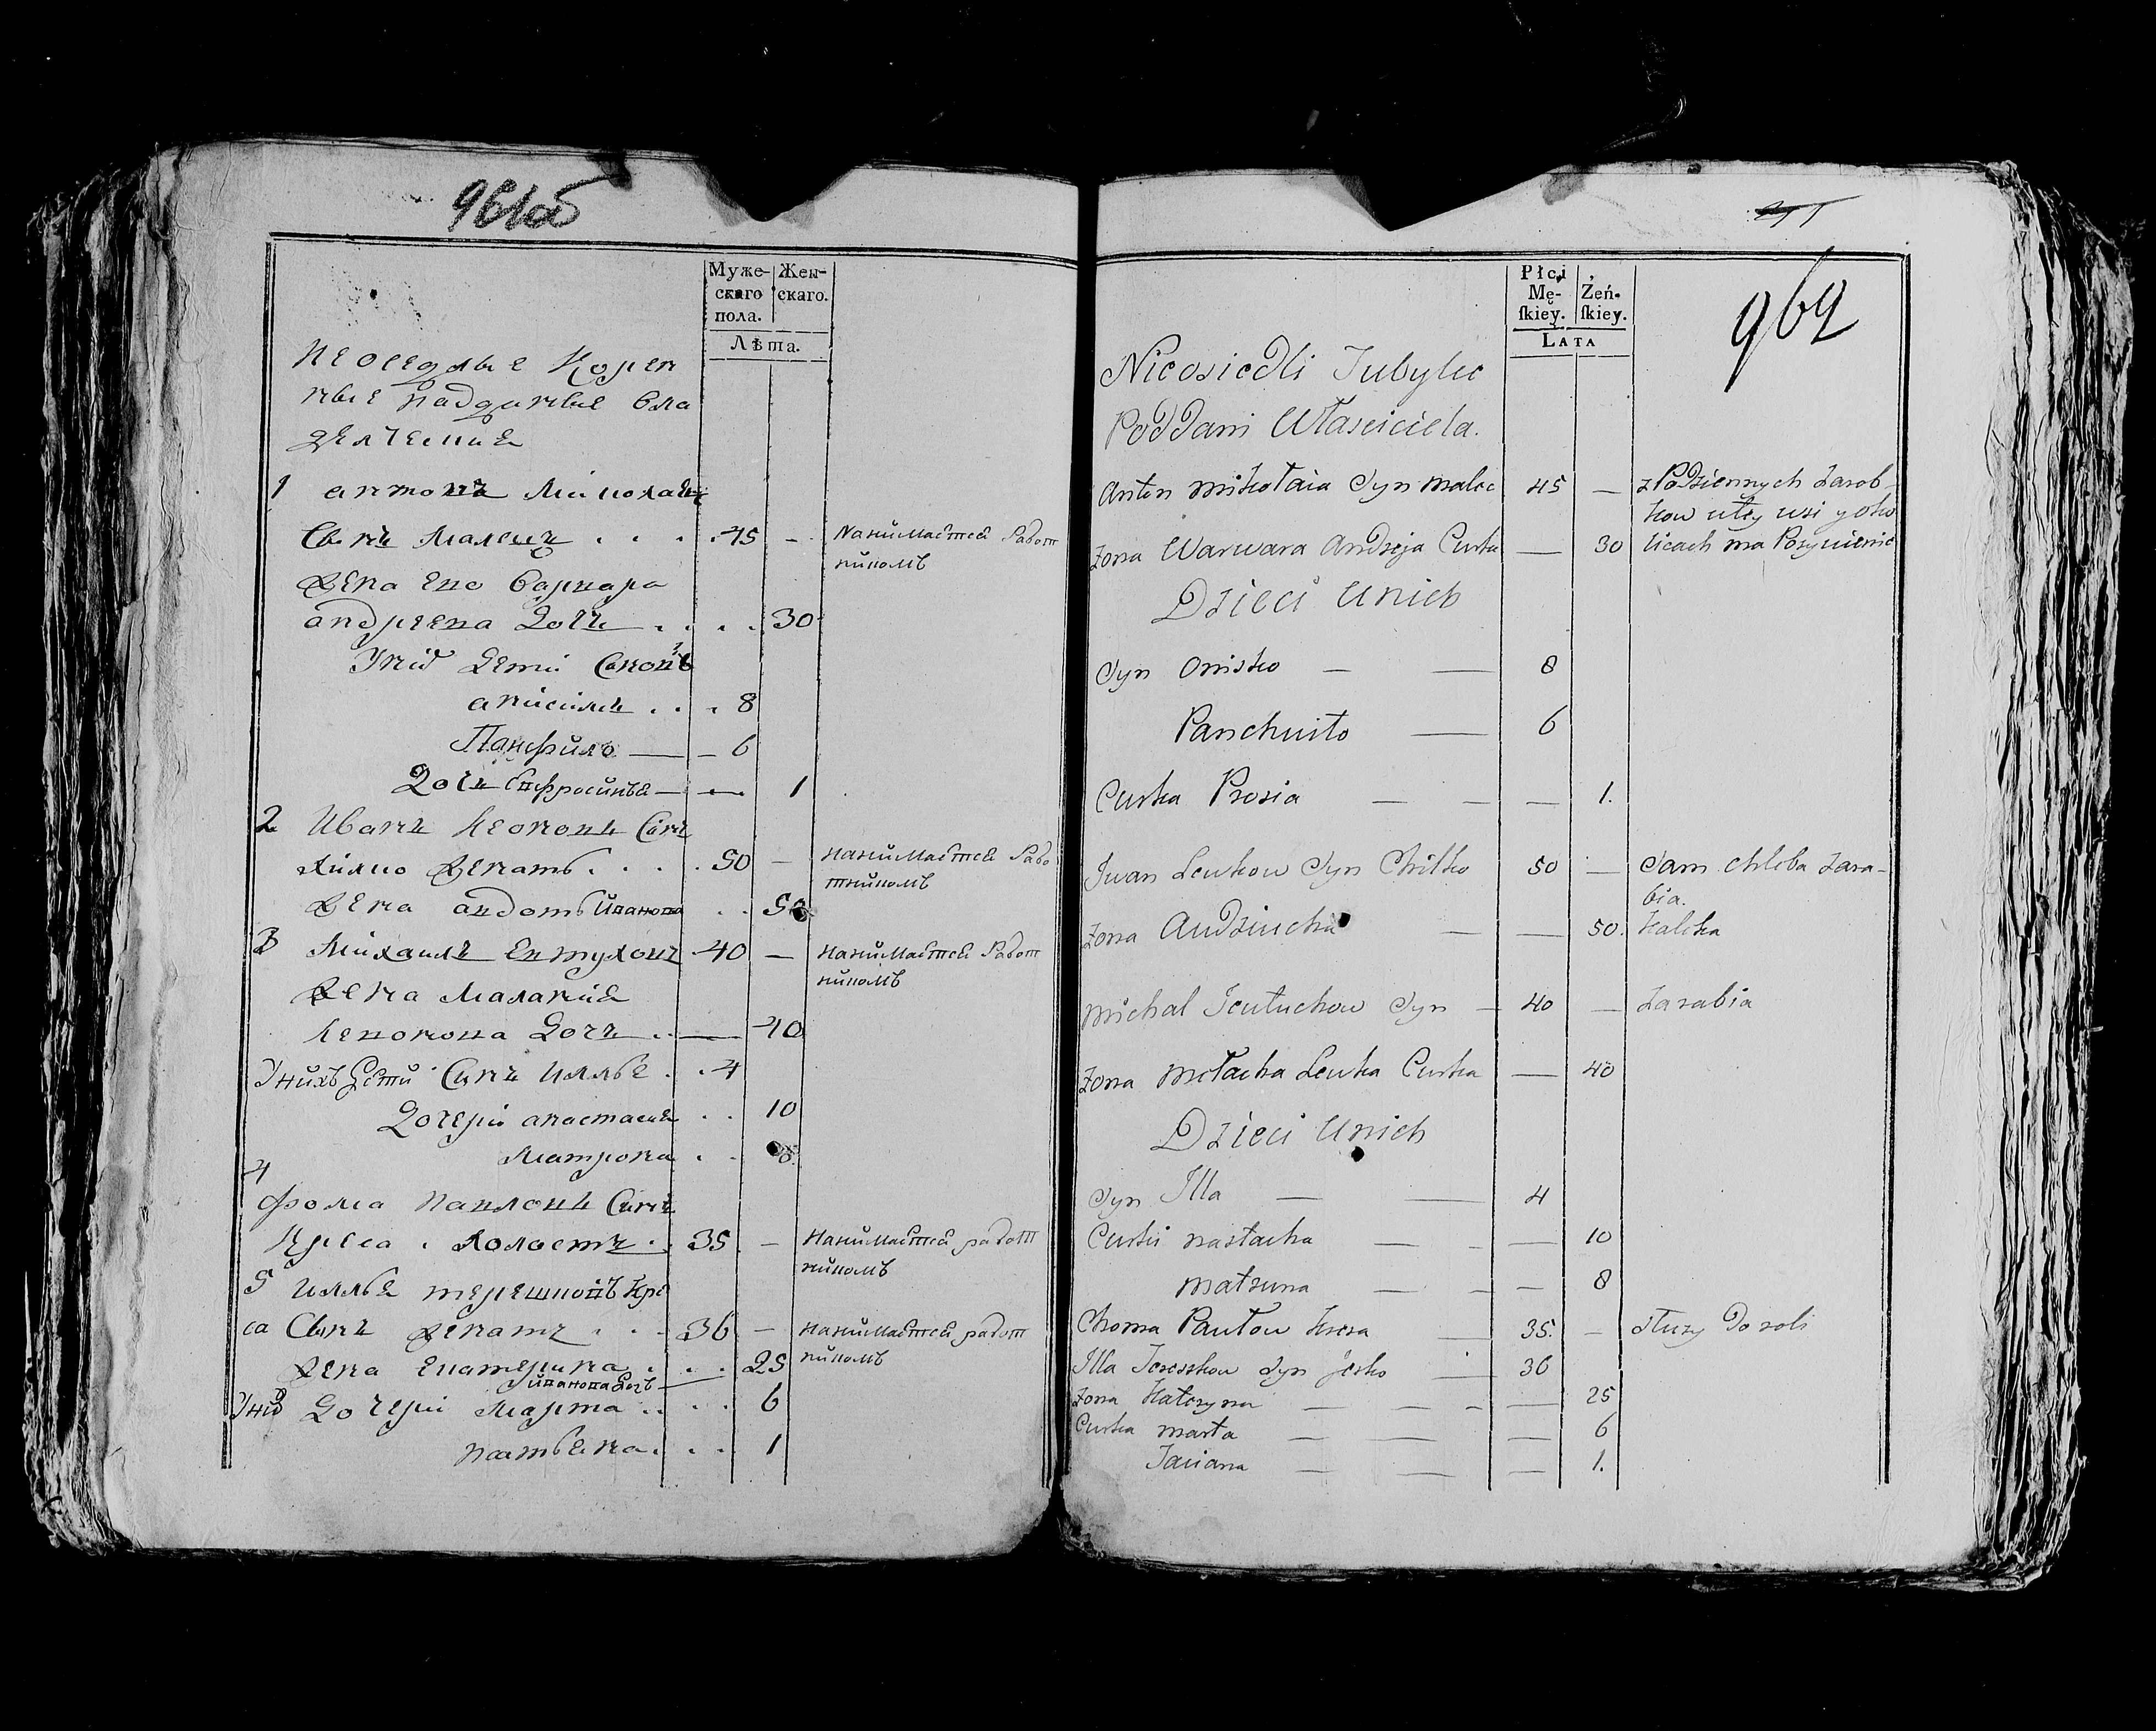 961об
Муже-
скаго
пола.
Жен-
скаго.
Лѣта.
неоседлые Корен
ные падданные вла
делческие
1 антонъ Миколаевъ
Сынъ Малецъ . . . . 45 –
Нанимается Работ
никомъ
Жена Его Варвара
андреева Дочь . . . . 30
Унихъ Дети Сыновъ
анисимъ . . . 8
Панфило — – 6
Дочь Евфросинья — — 1
2 Иванъ Левоновъ Сынъ
Хилко Женатъ . . . . 50 –
Нанимается Рабо
тникомъ
Жена авдотья Иванова . . 50
3 Михаилъ Евтуховъ 40 –
Нанимается Работ
никомъ
Жена Малания
Левонова Дочь . . — 40
Унихъ Дети Сынъ Иллья . . 4
Дочери анастасия . . 10
Матрона . . 8.
4
Фома Павловъ Сынъ
Креса . Холостъ . . 35 –
Нанимается работ
никомъ
5 Иллья терешковъ Кре
са Сынъ Женатъ . . . 36 –
Нанимается работ
никомъ
Жена Екатерина . . . 25
Иванова Дочь
Унихъ Дочери Марта . . . . 6
татьяна . . . 1
Płci
Mę-
skiey.
Żeń-
skiey.
LATA
962
Nieosiedli Tubylce
Poddani Własciciela.
Anton Mikołaia Syn Malec 45 —
z Podziennych Zarob-
kow utey wsi y oko
Zona Warwara Andreja Curka — 30
licach ma Pozywienie
Dzieci Unich
Syn Onisko — — 8
Panchwiło — 6
Curka Prosia — — — 1.
Iwan Lewkow Syn Chilko 50 —
Sam Chleba Zara-
bia.
Zona Audziucha — — 50.
Kaleka
Michal Jewtuchow Syn — 40 —
Zarabia
Zona Mełacha Lewka Curka — 40
Dzieci Unich
Syn Illa — — 4
Curki Nastacha — – — 10
Matruna — – — 8
Choma Pawłow Kresa — 35. –
słuzy Do roli
Illa Jereszkow Syn — 36
Zona Katerzyna — — – — 25
Curka Marta — — — 6
Taciana — — — 1.